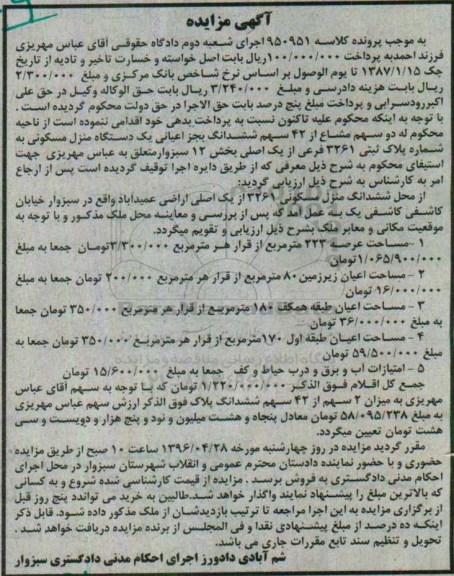 آگهی مزایده
به موجب پرونده کلاسه ۹۵۰۹۵۱ اجرای شعبه دوم دادگاه حقوقی آقای عباس مهریزی
فرزند احمدبه پرداخت ۱۰۰/۰۰۰/۰۰۰ریال بابت اصل خواسته و خسارت تاخیر و تادیه از تاریخ
چک ۱۳۸۷/۱/۱۵ تا یوم الوصول بر اساس نرخ شاخص بانک مرکزی و مبلغ ۲/۳۰۰/۰۰۰
ریال بابت هزینه دادرسی و مبلغ ۳/۲۴۰/۰۰۰ ریال بابت حق الوکاله وکیل در حق علی
اکبررودسرابی و پرداخت مبلغ پنج درصد بابت حق الاجرا در حق دولت محکوم گردیده است .
با توجه به اینکه محکوم علیه تاکنون نسبت به پرداخت بدهی خود اقدامی ننموده است از ناحیه
محکوم له دو سهم مشاع از ۴۲ سهم ششدانگ بجز اعیانی یک دستگاه منزل مسکونی به
شماره پلاک ثبتی ۳۲۶۱ فرعی از یک اصلی بخش ۱۲ سبزوارمتعلق به عباس مهریزی جهت
استیفای محکوم به شرح ذیل معرفی که از طریق دایره اجرا توقیف گردیده است پس از ارجاع
امر به کارشناس به شرح ذیل ارزیابی گردید:
از محل ششدانگ منزل مسکونی ۳۲۶۱ از یک اصلی اراضی عمیدآباد واقع در سبزوار خیابان
کاشفی کاشفی یک به عمل آمد که پس از بررسی و معاینه محل ملک مذکور و با توجه به
موقعیت مکانی و معابر ملک بشرح ذیل ارزیابی و تقویم میگردد.
۱ -مساحت عرصه ۳۲۳ مترمربع از قرار هر مترمربع ۳/۳۰۰/۰۰۰تومان جمعا به مبلغ
۱/۰۶۵/۹۰۰/۰۰۰تومان
۲ - مساحت اعیان زیرزمین۸۰ مترمربع از قرار هر مترمربع ۲۰۰/۰۰۰ تومان جمعا به مبلغ
۱۶/۰۰۰/۰۰۰ تومان
۳ - مساحت اعیان طبقه همکف ۱۸۰ مترمربع از قرار هر مترمربع ۳۵۰/۰۰۰ تومان جمعا
به مبلغ ۳۶/۰۰۰/۰۰۰ تومان
۴ - مساحت اعیان طبقه اول ۱۷۰مترمربع از قرار هر مترمربع ۳۵۰/۰۰۰ تومان جمعا به
مبلغ ۵۹/۵۰۰/۰۰۰ تومان
۵ - امتیازات آب و برق و درب حیاط و کف جمعا به مبلغ ۱۵/۶۰۰/۰۰۰ تومان
جمع کل اقلام فوق الذکر ۱/۲۲۰/۰۰۰/۰۰۰ تومان که با توجه به سهم آقای عباس
مهریزی به میزان ۲ سهم از ۴۲ سهم ششدانگ پلاک فوق الذکر ارزش سهم عباس مهریزی
به مبلغ ۵۸/۰۹۵/۲۳۸ تومان معادل پنجاه و هشت میلیون و نود و پنج هزار و دویست و سی
هشت تومان تعیین میگردد.
مقرر گردید مزایده در روز چهارشنبه مورخه ۱۳۹۶/۰۴/۲۸ ساعت ۱۰ صبح از طریق مزایده
حضوری و با حضور نماینده دادستان محترم عمومی و انقلاب شهرستان سبزوار در محل اجرای
احکام مدنی دادگستری به فروش برسد . مزایده از قیمت کارشناسی شده شروع و به کسانی
که بالاترین مبلغ را پیشنهاد نمایند واگذار خواهد شد.طالبین به خرید می توانند پنج روز قبل
از برگزاری مزایده به این اجرا مراجعه تا ترتیب بازدیدشان از ملک مذکور داده شود. قابل ذکر
اینکه ده درصد از مبلغ پیشنهادی نقدا و فی المجلس از برنده مزایده دریافت خواهد شد .
تحویل و تنظیم سند تابع مقررات جاری می باشد.
شم آبادی دادورز اجرای احکام مدنی دادگستری سبزوار